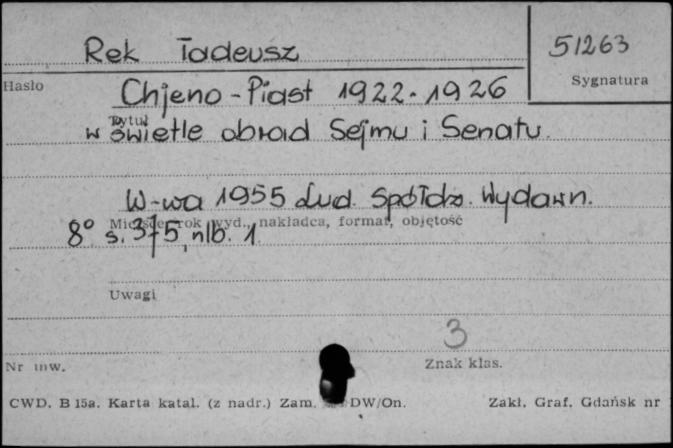 Rek Tadeusz
51263
Hasło
Sygnatura
Chjeno-Piast 1922-1926
Tytuł
w świetle obrad Sejmu i Senatu.
W-wa 1955 Lud. Spółdz. Wydawn.
Miejsce, rok wyd., nakładca, format, objętość
8° s. 375, nlb. 1
Uwagi
3
Nr inw.
Znak klas.
CWD. B 15a. Karta katal. (z nadr.) Zam. DW/On. Zakł. Graf. Gdańsk nr